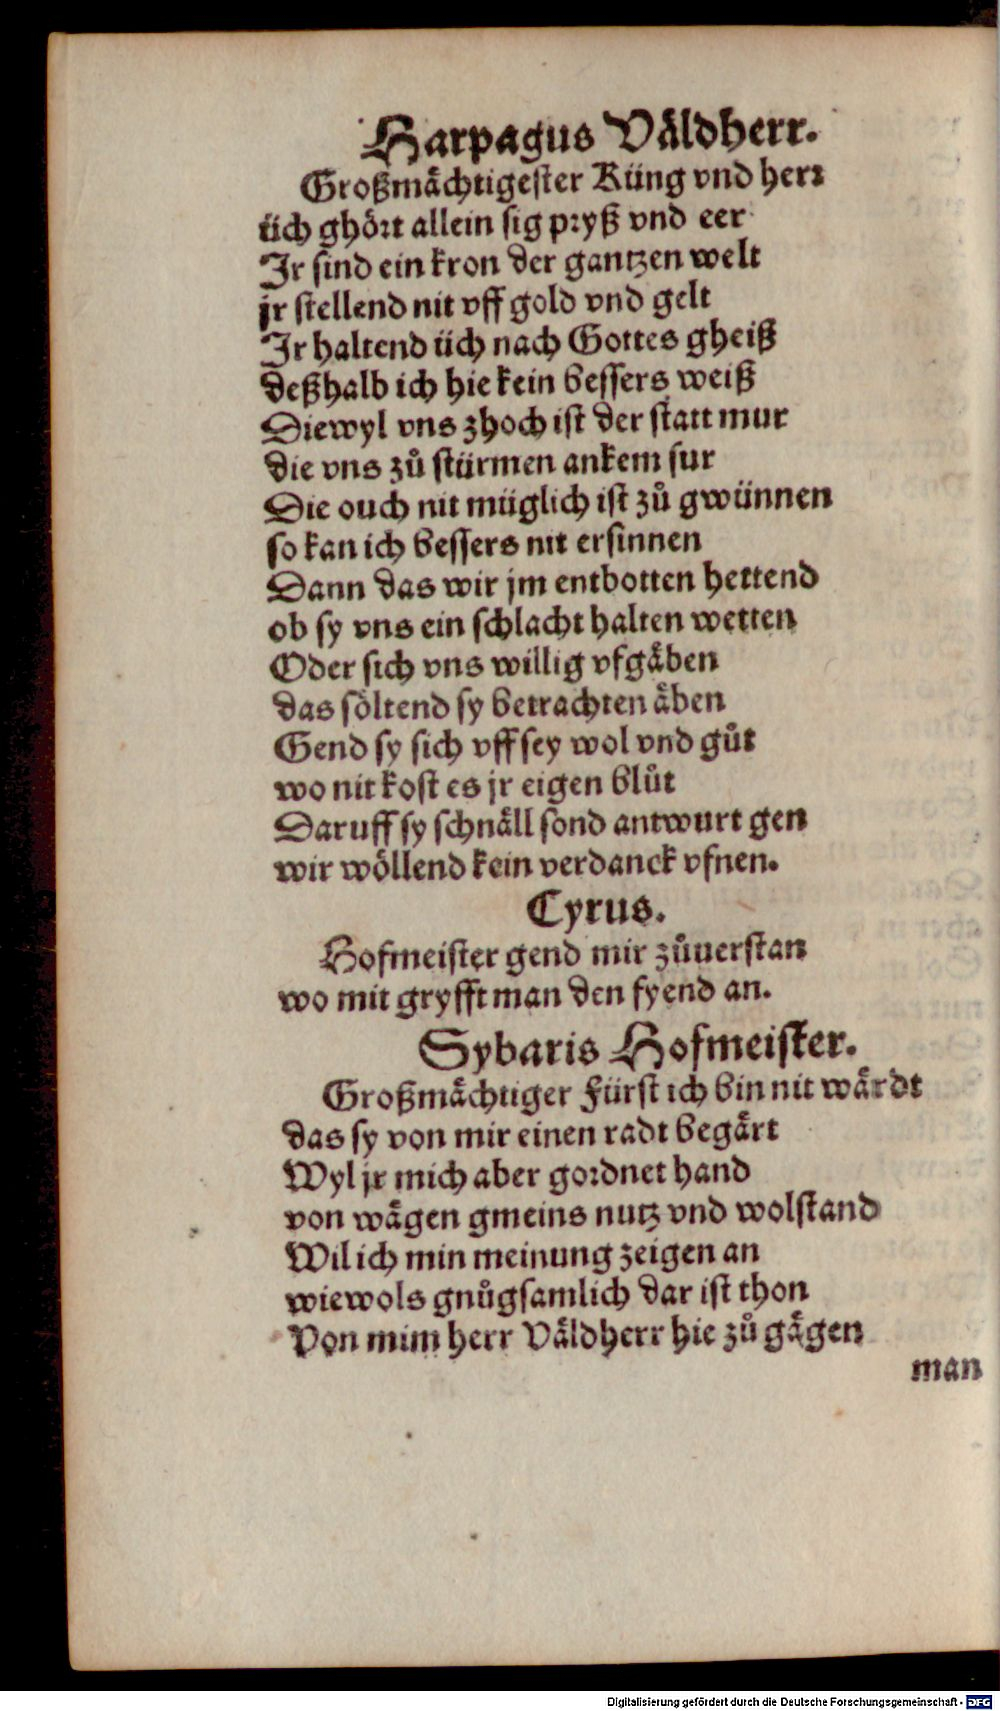 Harpagus Väldherr.
Großmächtigester Küng vnd herr
üch ghört allein sig pryß vnd eer
Jr sind ein kron der gantzen welt
jr stellend nit vff gold vnd gelt
Jr haltend üch nach Gottes gheiß
deßhalb ich hie kein bessers weiß
Diewyl vns zhoch ist der statt mur
die vns zů stürmen ankem sur
Die ouch nit müglich ist zů gwünnen
so kan ich bessers nit ersinnen
Dann das wir jm entbotten hettend
ob sy vns ein schlacht halten wetten
Oder sich vns willig vfgäben
das söltend sy betrachten äben
Gend sy sich vff sey wol vnd gůt
wo nit kost es jr eigen blůt
Daruff sy schnäll sond antwurt gen
wir wöllend kein verdanck vfnen.
Cyrus.
Hofmeister gend mir zůuerstan
wo mit gryfft man den fyend an.
Sybaris Hofmeister.
Großmächtiger Fürst ich bin nit wärdt
das sy von mir einen radt begärt
Wyl jr mich aber gordnet hand
von wägen gmeins nutz vnd wolstand
Wil ich min meinung zeigen an
wiewols gnůgsamlich dar ist thon
Von mim herr Väldherr hie zů gägen
man
Digitalisierung gefördert durch die Deutsche Forschungsgemeinschaft - DFG